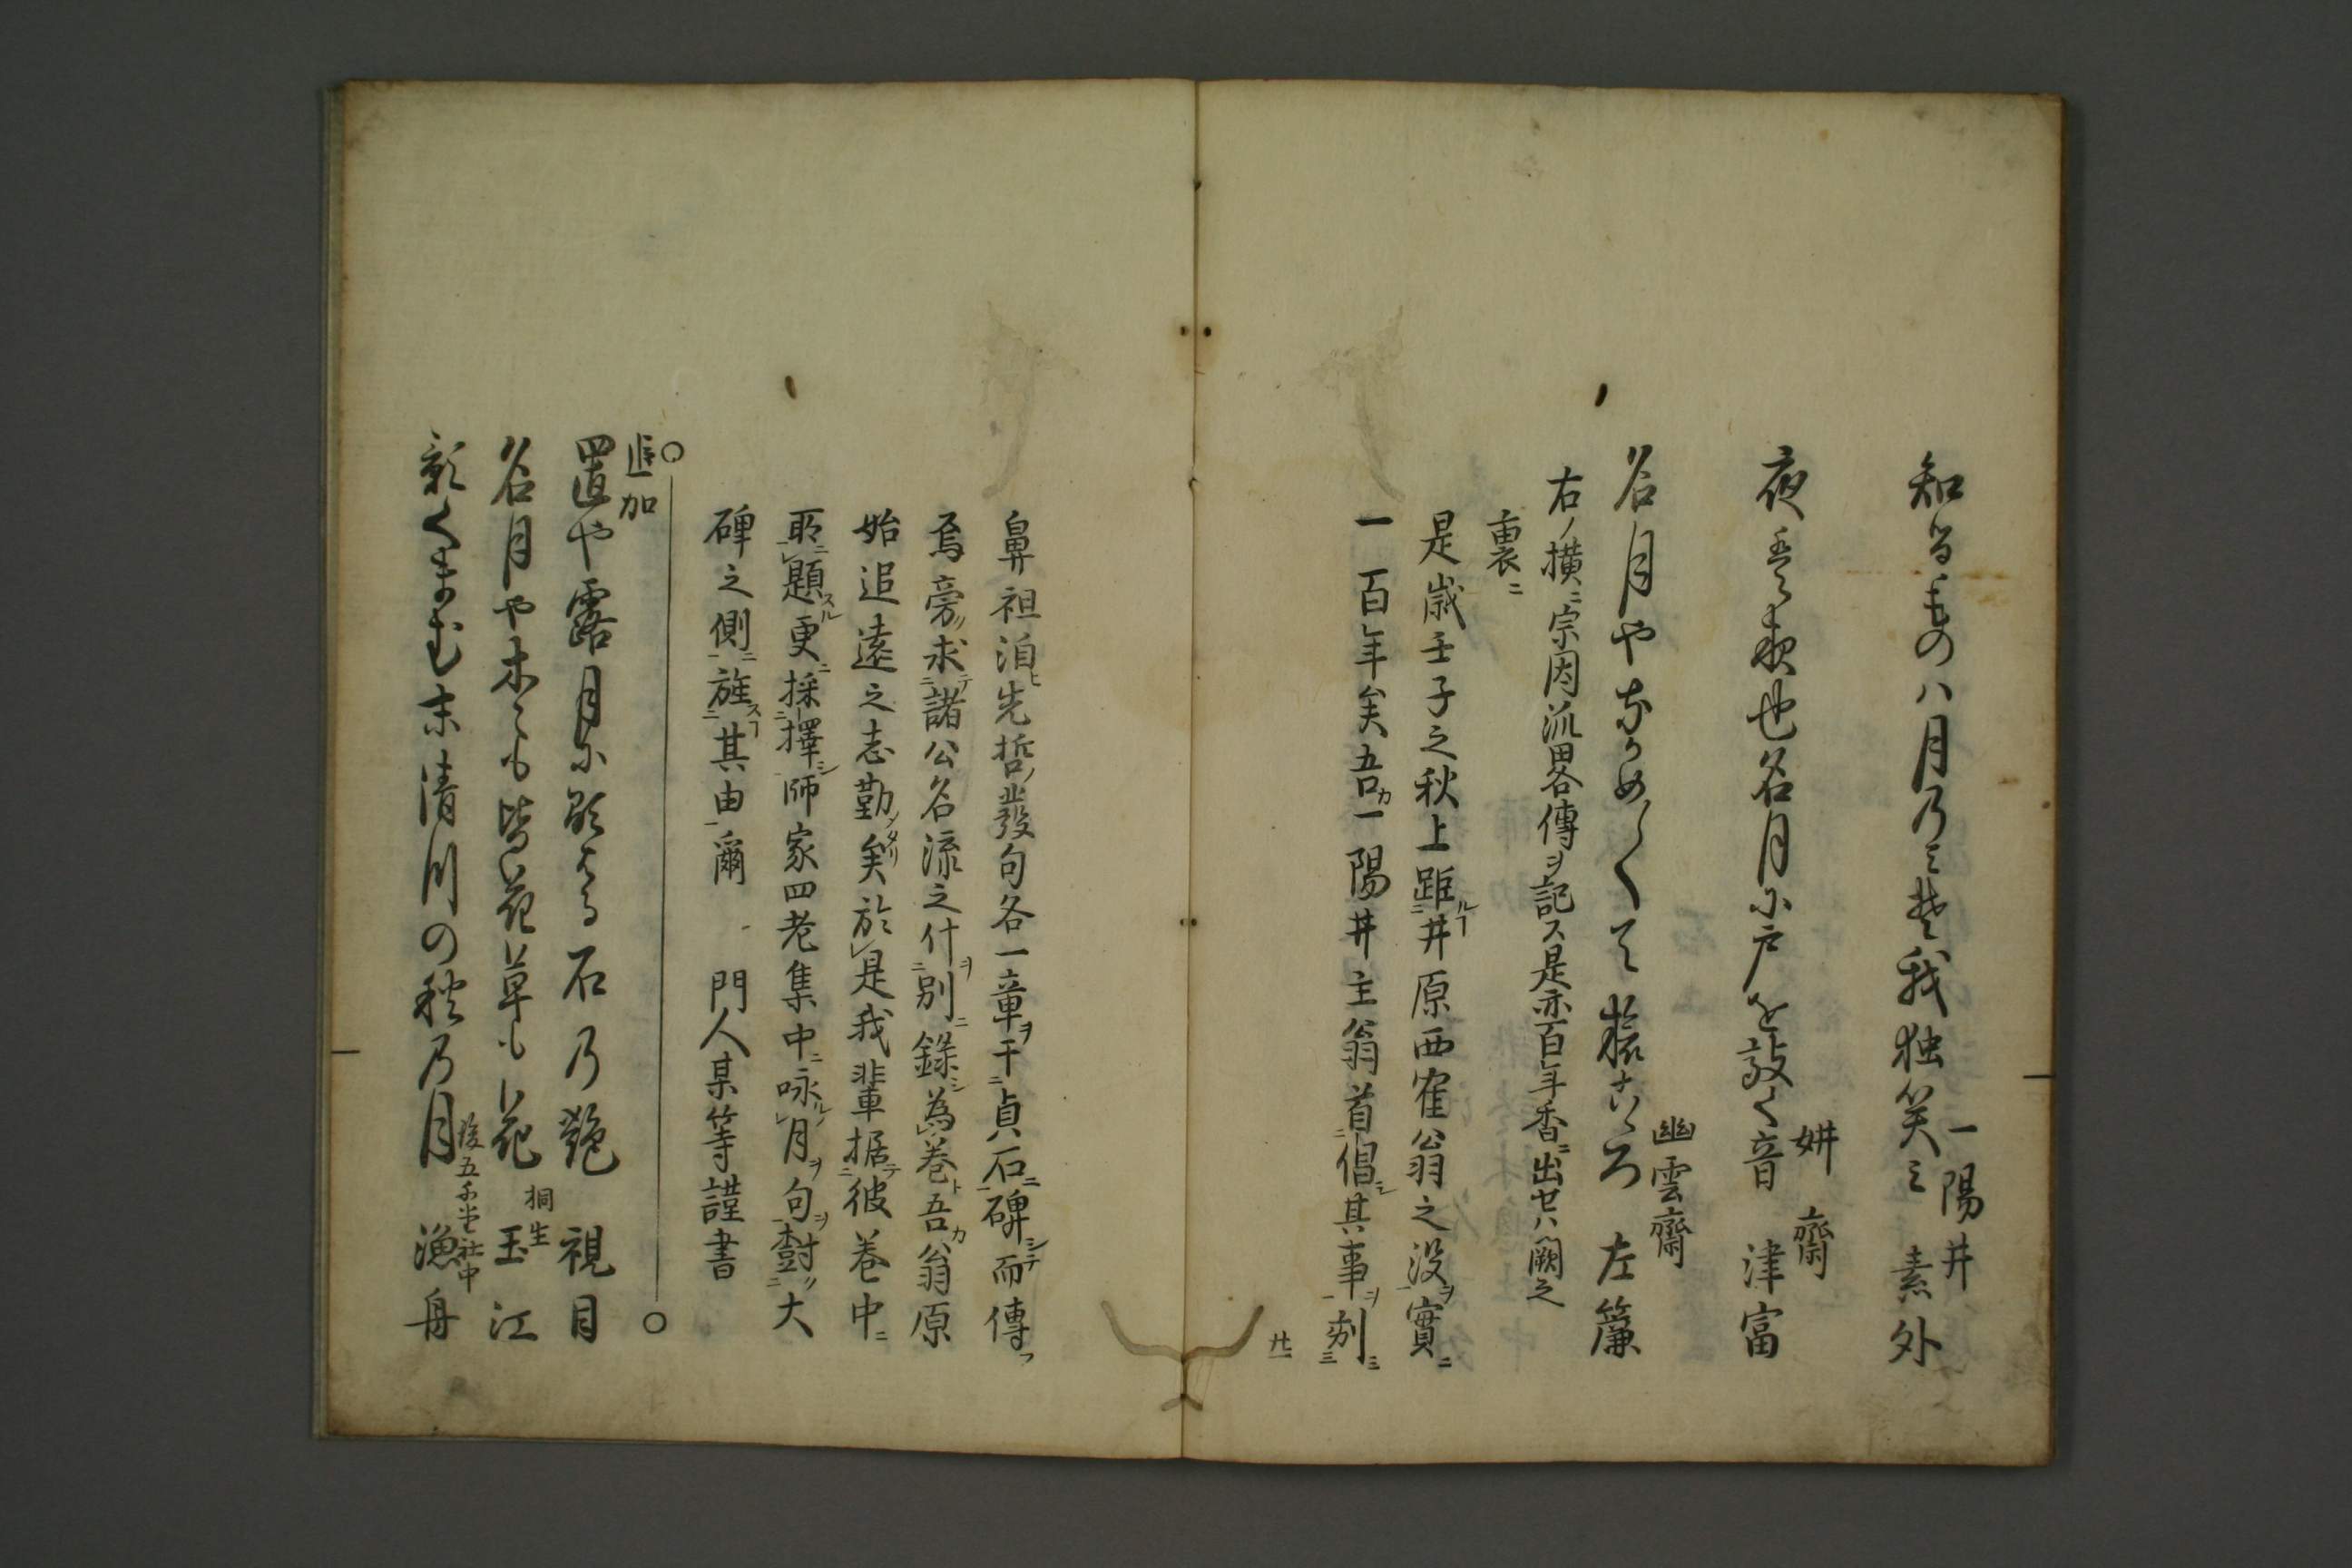 一陽井
知るものハ月のミそ我独笑ミ 素外
妍齋
夜遊也名月に戸を敲く音 津富
幽雲齋
名月やなかめ〱て旅こゝろ 左簾
右ノ横ニ宗因流畧傳ヲ記ス是亦百年香ニ出セハ闕之
裏ニ
是歳壬子之秋上距ルヿ二井原西隺翁之没ヲ一實ニ
一百年矣吾カ一陽井主翁首ニ倡シ其事ヲ一刻ニ三
廿一
鼻祖洎ヒ先哲ノ發句各一章ヲ于貞石ニ一碑シテ而傳フ
焉旁〃求テ二諸公名流之什ヲ一別ニ録シ為レ巻ト吾カ翁原
始追遠之志勤メタリ矣於レ是我輩据テ二彼巻中ニ
所ニ一レ題スル更ニ採二擇シ師家四老集中ニ咏ルノレ月ヲ句ヲ一樹〃二大
碑之側ニ一旌スヿ二其由一爾 門人某等謹書
追加
置や露月に顕はる石の艶 視目
桐生
名月や木にも皆花草も花 玉江
後五千堂社中
影くまむ末清川の秋の月 漁舟